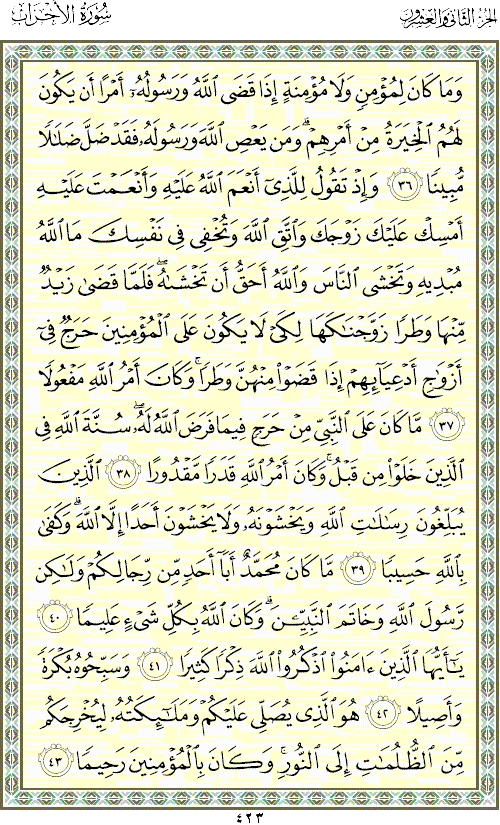 الجزء الثاني والعشرون سُورَةُ الأَحْزَابِ
وَمَا كَانَ لِمُؤْمِنٍ وَلَا مُؤْمِنَةٍ إِذَا قَضَى ٱللَّهُ وَرَسُولُهُۥٓ أَمْرًا أَن يَكُونَ
لَهُمُ ٱلْخِيَرَةُ مِنْ أَمْرِهِمْ ۗ وَمَن يَعْصِ ٱللَّهَ وَرَسُولَهُۥ فَقَدْ ضَلَّ ضَلَـٰلًا
مُّبِينًا ٣٦ وَإِذْ تَقُولُ لِلَّذِىٓ أَنْعَمَ ٱللَّهُ عَلَيْهِ وَأَنْعَمْتَ عَلَيْهِ
أَمْسِكْ عَلَيْكَ زَوْجَكَ وَٱتَّقِ ٱللَّهَ وَتُخْفِى فِى نَفْسِكَ مَا ٱللَّهُ
مُبْدِيهِ وَتَخْشَى ٱلنَّاسَ وَٱللَّهُ أَحَقُّ أَن تَخْشَىٰهُ ۖ فَلَمَّا قَضَىٰ زَيْدٌ
مِّنْهَا وَطَرًا زَوَّجْنَـٰكَهَا لِكَىْ لَا يَكُونَ عَلَى ٱلْمُؤْمِنِينَ حَرَجٌ فِىٓ
أَزْوَٰجِ أَدْعِيَآئِهِمْ إِذَا قَضَوْا۟ مِنْهُنَّ وَطَرًا ۚ وَكَانَ أَمْرُ ٱللَّهِ مَفْعُولًا
٣٧ مَّا كَانَ عَلَى ٱلنَّبِىِّ مِنْ حَرَجٍ فِيمَا فَرَضَ ٱللَّهُ لَهُۥ ۖ سُنَّةَ ٱللَّهِ فِى
ٱلَّذِينَ خَلَوْا۟ مِن قَبْلُ ۚ وَكَانَ أَمْرُ ٱللَّهِ قَدَرًا مَّقْدُورًا ٣٨ ٱلَّذِينَ
يُبَلِّغُونَ رِسَـٰلَـٰتِ ٱللَّهِ وَيَخْشَوْنَهُۥ وَلَا يَخْشَوْنَ أَحَدًا إِلَّا ٱللَّهَ ۗ وَكَفَىٰ
بِٱللَّهِ حَسِيبًا ٣٩ مَّا كَانَ مُحَمَّدٌ أَبَآ أَحَدٍ مِّن رِّجَالِكُمْ وَلَـٰكِن
رَّسُولَ ٱللَّهِ وَخَاتَمَ ٱلنَّبِيِّـۧنَ ۗ وَكَانَ ٱللَّهُ بِكُلِّ شَىْءٍ عَلِيمًا ٤٠
يَـٰٓأَيُّهَا ٱلَّذِينَ ءَامَنُوا۟ ٱذْكُرُوا۟ ٱللَّهَ ذِكْرًا كَثِيرًا ٤١ وَسَبِّحُوهُ بُكْرَةً
وَأَصِيلًا ٤٢ هُوَ ٱلَّذِى يُصَلِّى عَلَيْكُمْ وَمَلَـٰٓئِكَتُهُۥ لِيُخْرِجَكُم
مِّنَ ٱلظُّلُمَـٰتِ إِلَى ٱلنُّورِ ۚ وَكَانَ بِٱلْمُؤْمِنِينَ رَحِيمًا ٤٣
٤٢٣